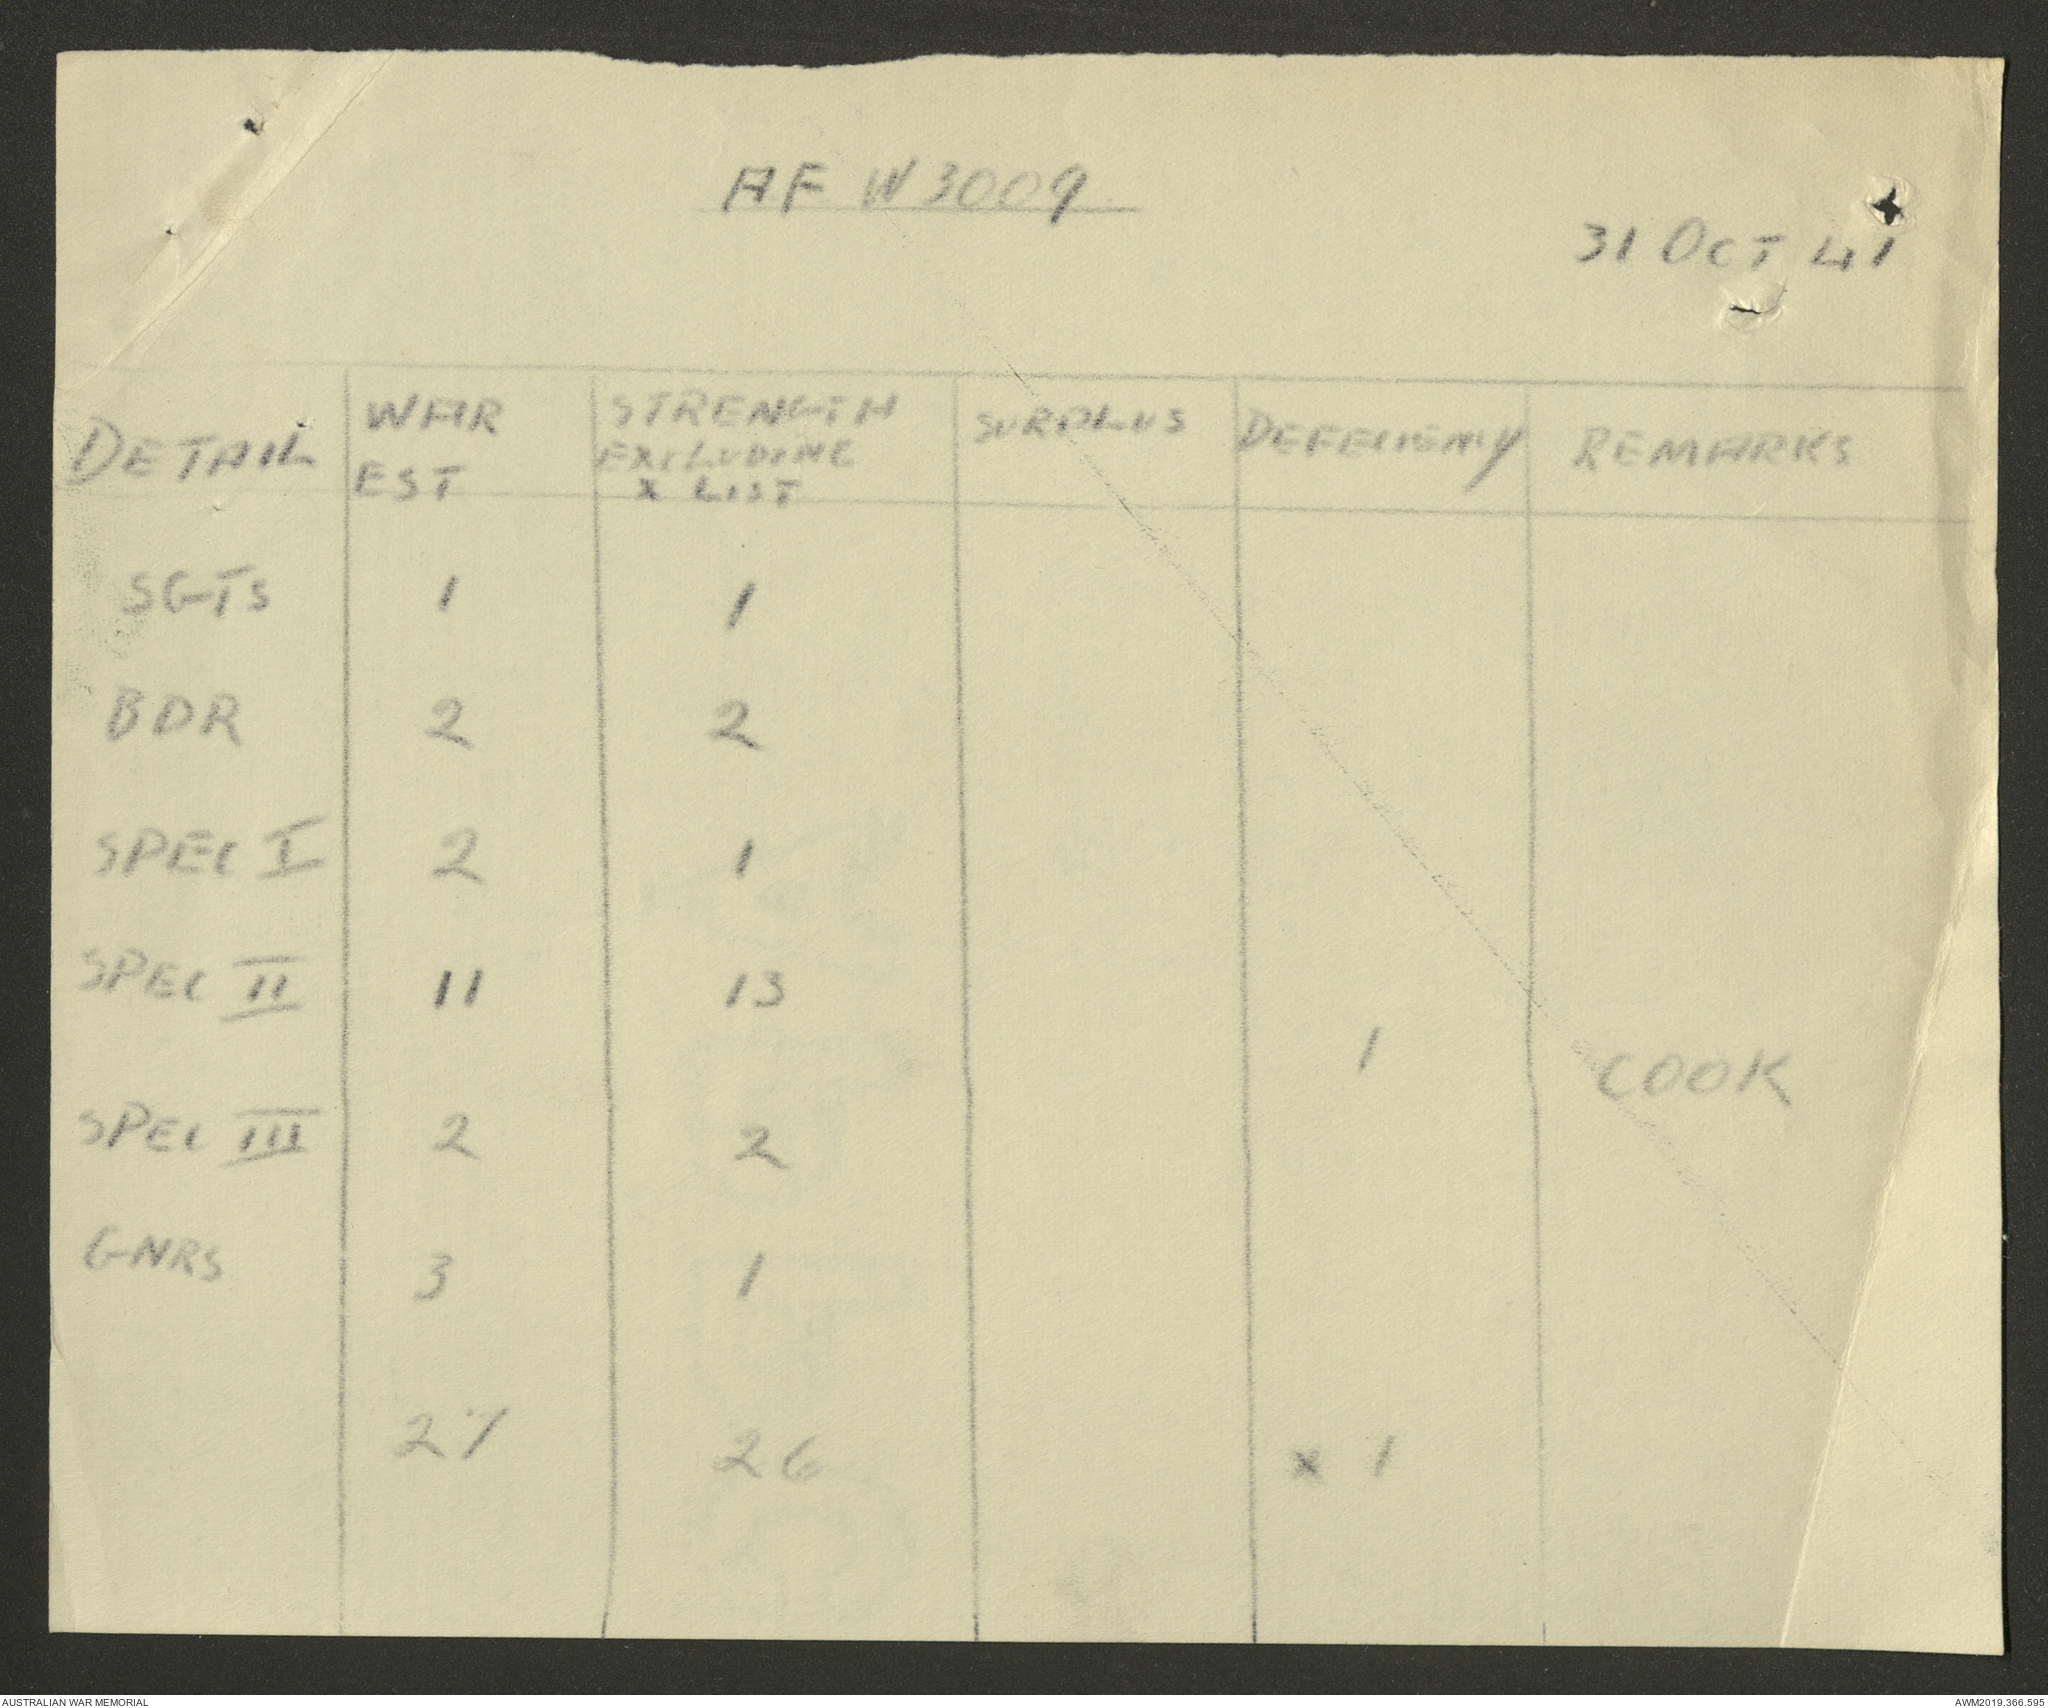 AF W3009
31 OCT 41
DETAIL WAR EST STRENGTH EXCLUDING X LIST SURPLUS DEFECIENCY REMARKS
SGTS 1 1
BDR 2 2
SPEC I 2 1
SPEC II 11 13
1 COOK
SPEC III 2 2
GNRS 3 1
27 26 x 1
AUSTRALIAN WAR MEMORIAL AWM2019.366.595